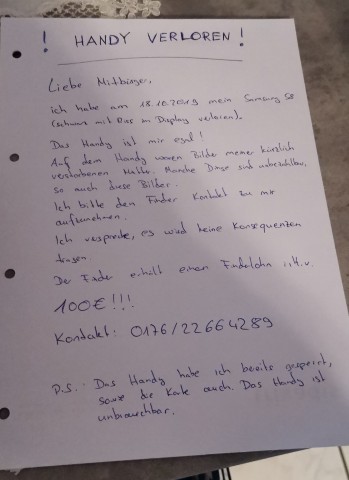 ! HANDY VERLOREN !
Liebe Mitbürger,
ich habe am 18.10.2019 mein Samsung S8
(schwarz mit Riss im Display verloren).
Das Handy ist mir egal!
Auf dem Handy waren Bilder meiner kürzlich
verstorbenen Mutter. Manche Dinge sind unbezahlbar,
so auch diese Bilder.
Ich bitte den Finder Kontakt zu mir
aufzunehmen.
Ich verspreche, es wird keine Konsequenten
tragen
Der Finder erhält einen Finderlohn i.H.v.
100€!!!
Kontakt: 0176/22664289
P.S.: Das Handy habe ich bereits gesperrt,
sowie die Karte auch. Das Handy ist
unbrauchbar.